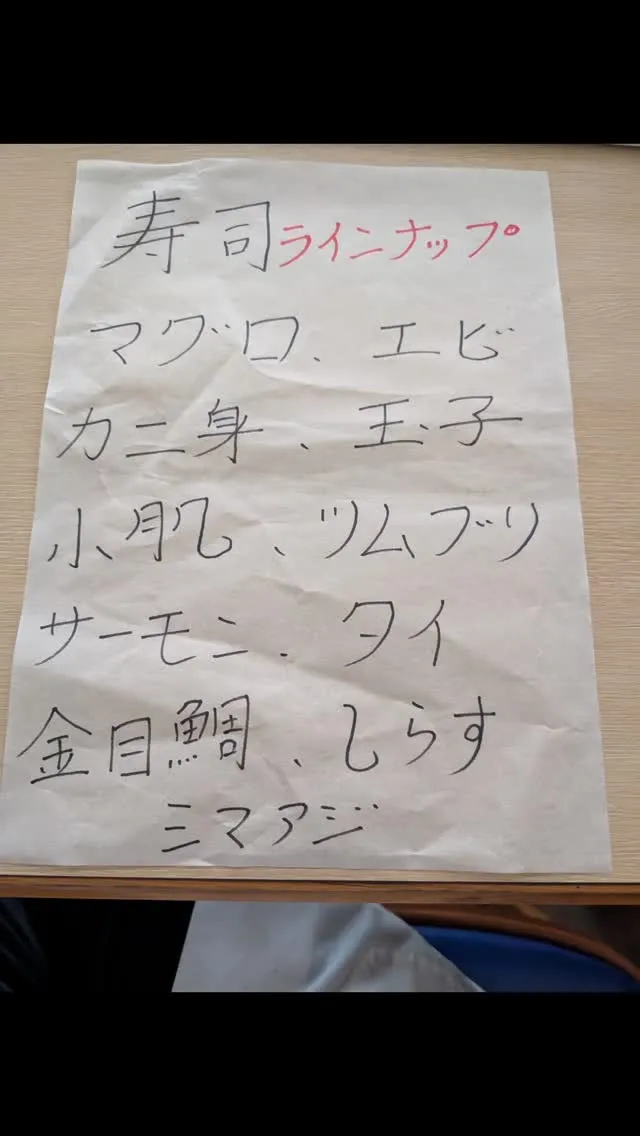 寿司ラインナップ
マグロ、エビ
カニ身、玉子
小肌、ツムブリ
サーモン、タイ
金目鯛、しらす
ミマアジ